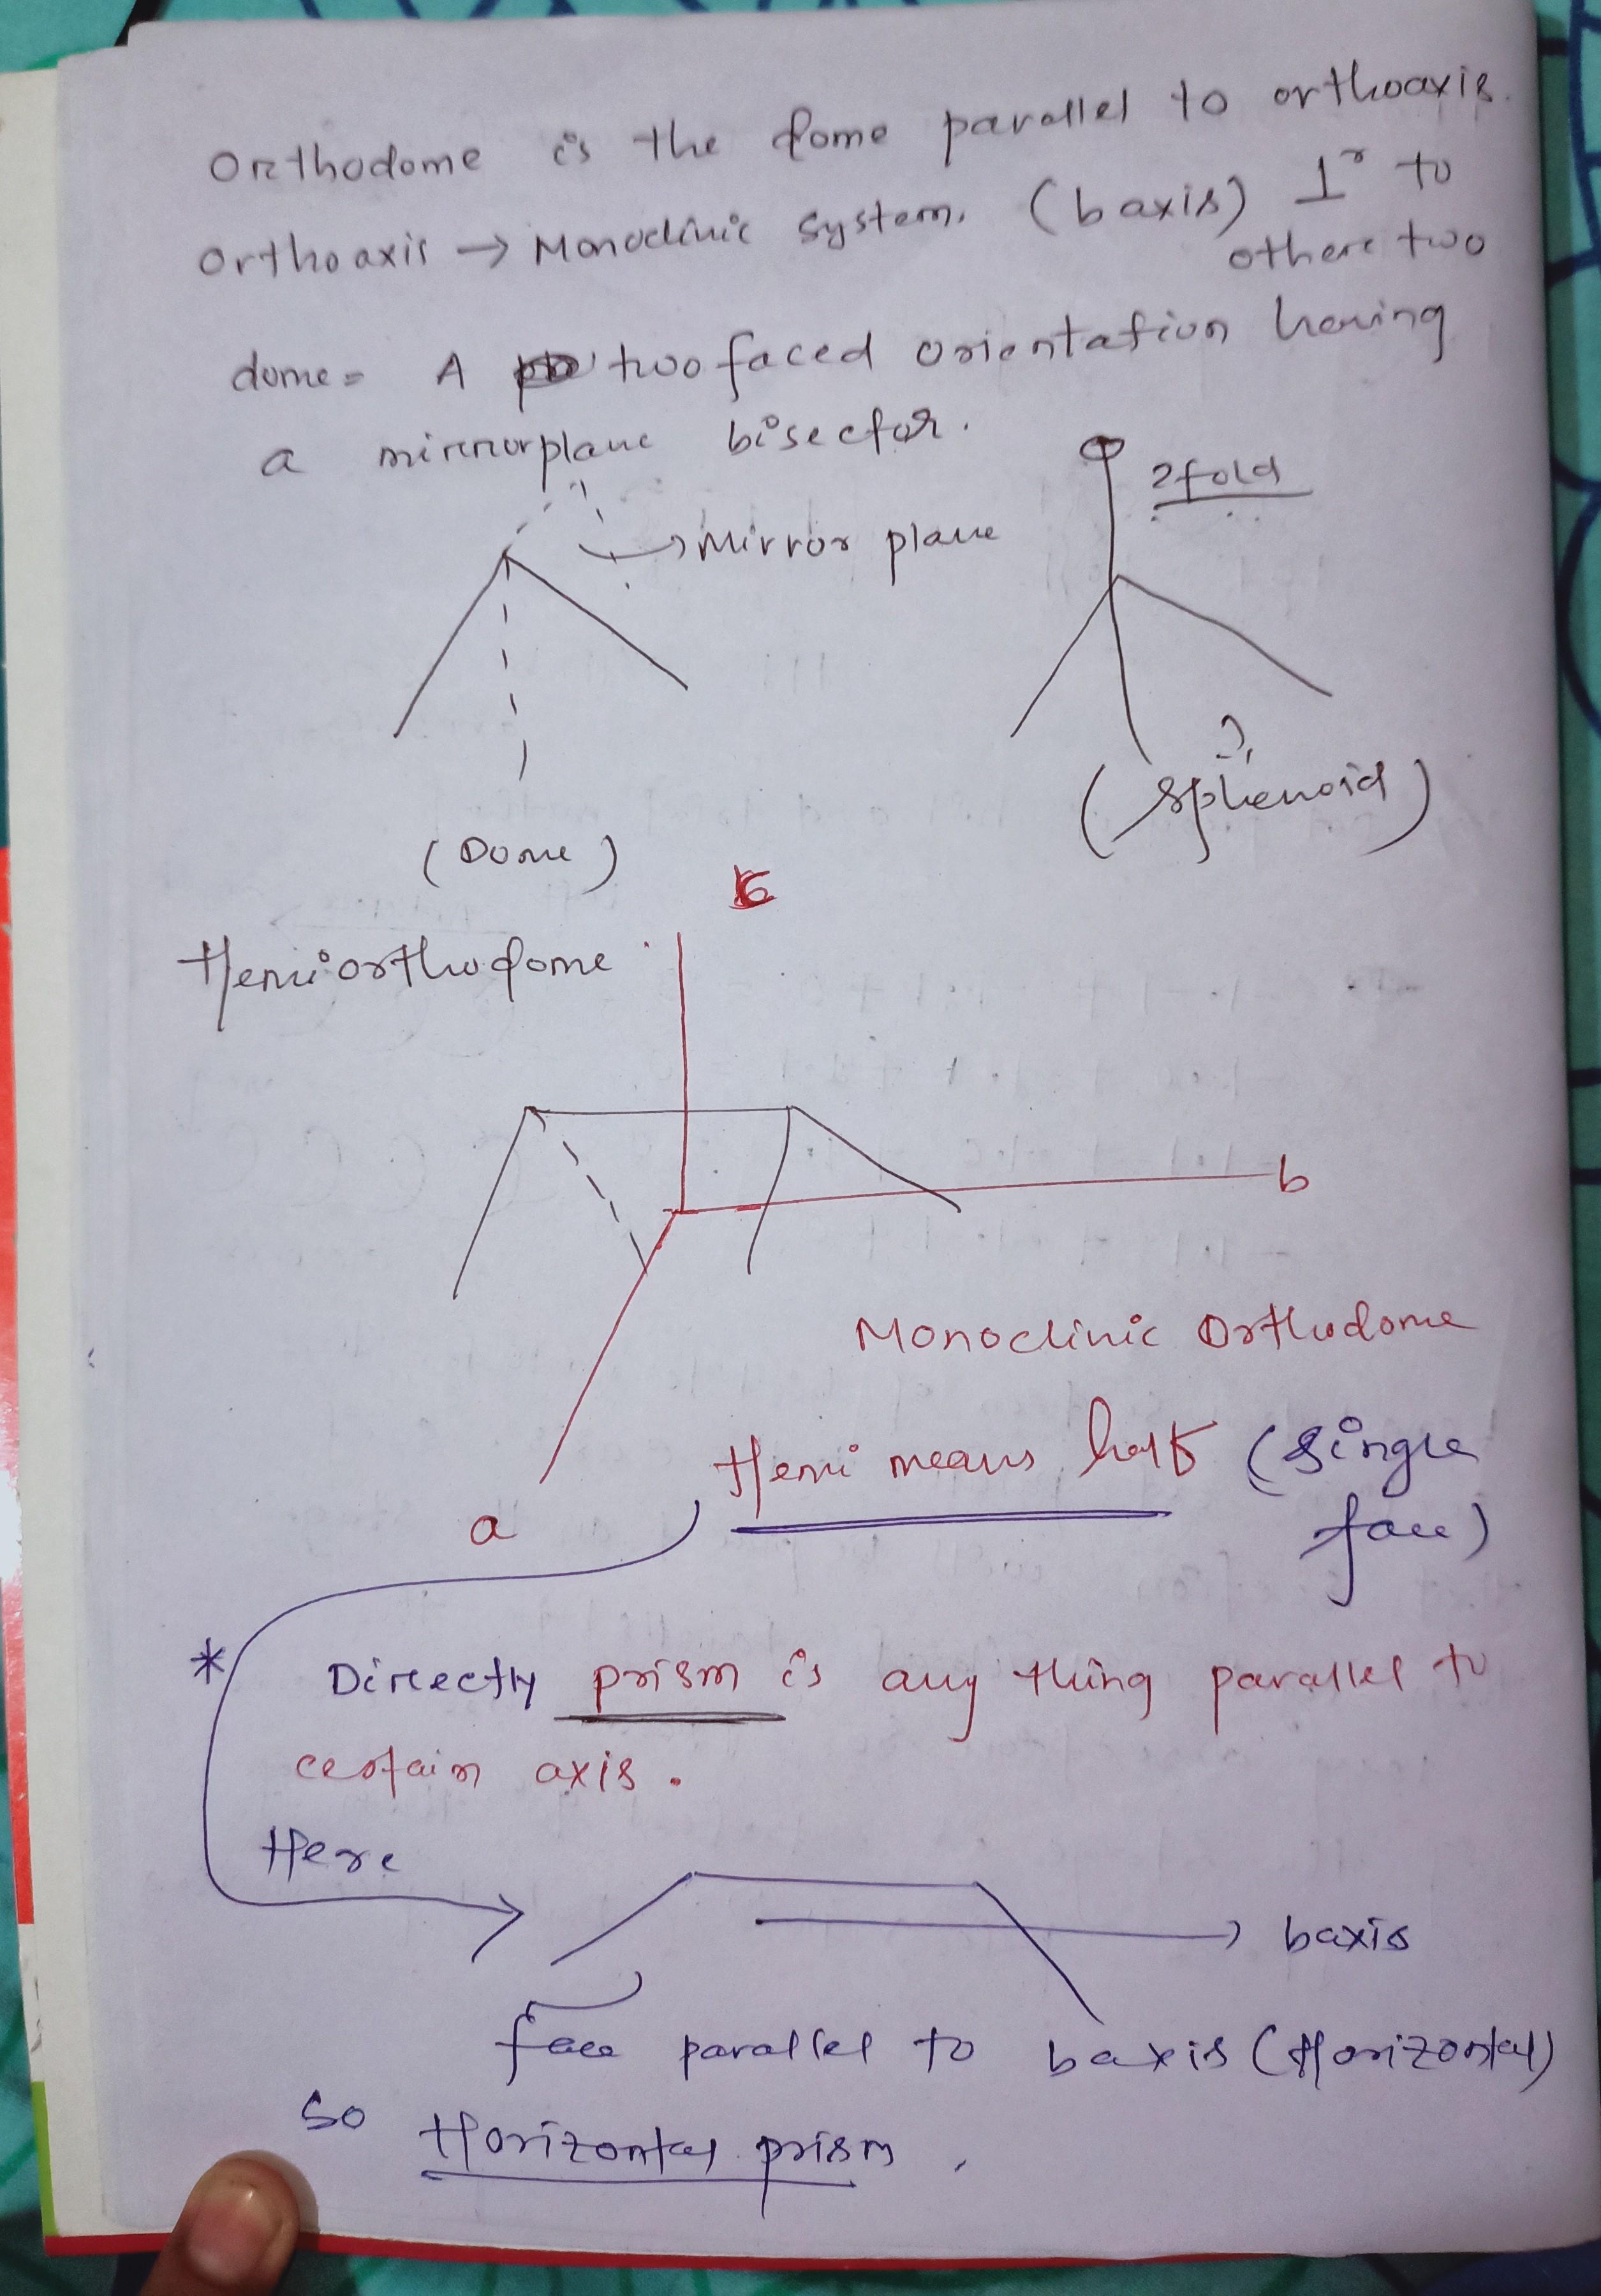 Orthodome is the dome parallel to orthoaxis.
Orthoaxis → Monoclinic system. (b axis) ⊥r to
othere two
dome = A two faced orientation having
a mirrorplane bisector.
2 fold
→ Mirror plane
(Dome)
(Sphenoid)
c
Hemiorthodome
b
Monoclinic Orthodome
Hemi means half (Single
face)
a
* Directly prism is any thing parallel to
certain axis.
Here
→ b axis
face parallel to b axis (Horizontal)
So Horizontal prism.